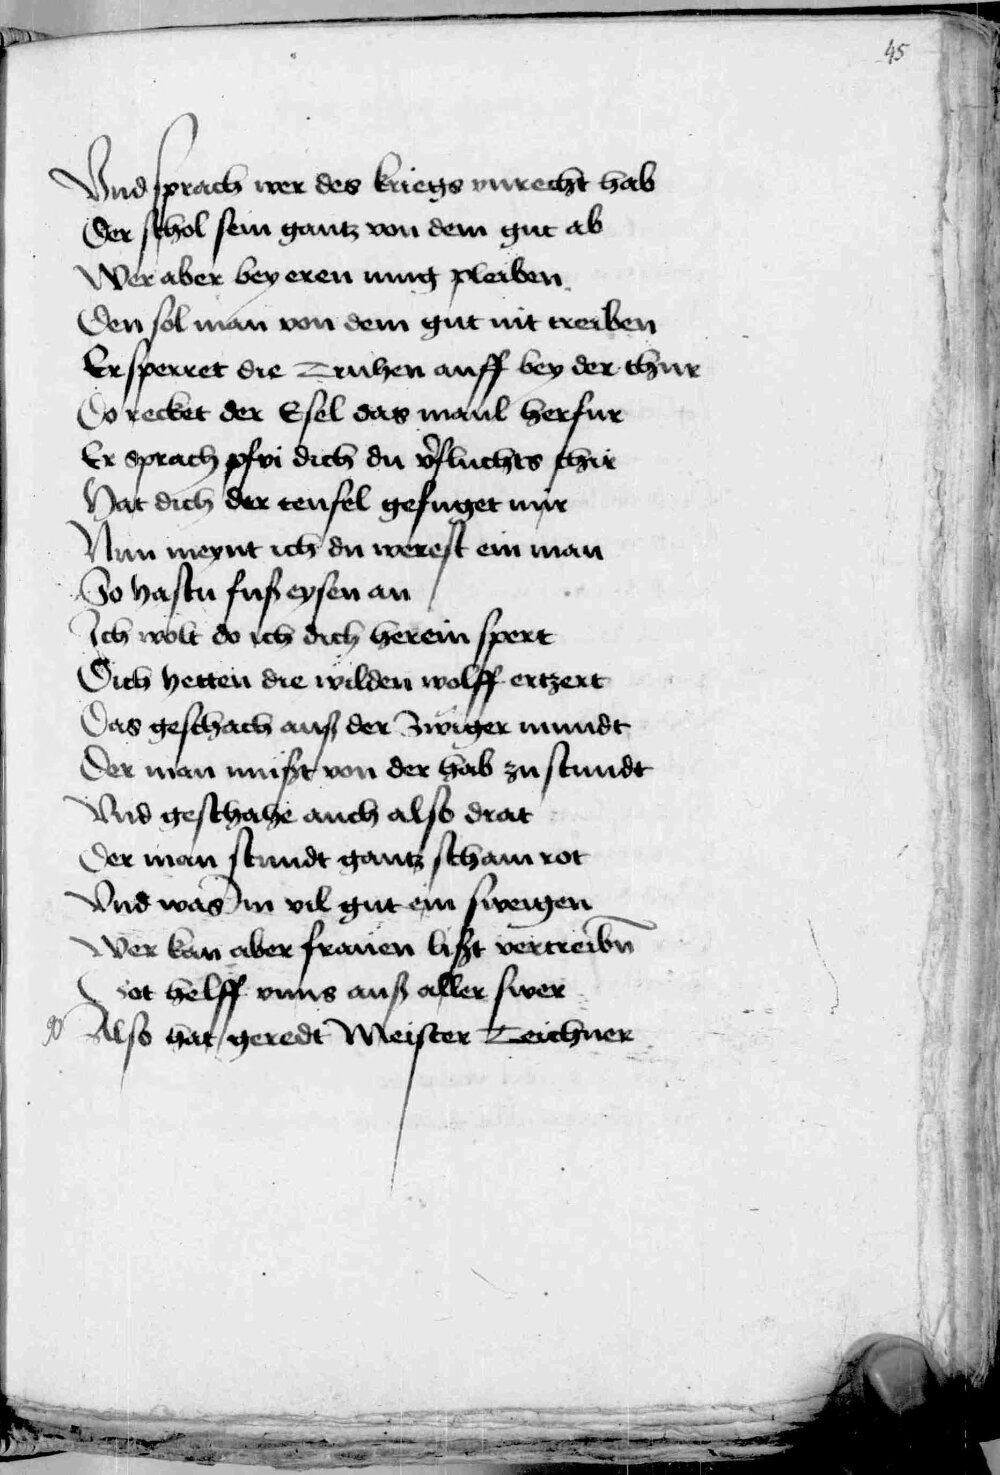 45
Vnd sprach wer des kriegs vnrecht hab
Der schol sein gantz von dem gut ab
Wer aber bey eren mug pleiben
Den sol man von dem gut nit treiben
Er sperret die Truhen auff bey der thur
Do recket der Esel das maul herfur
Er sprach pfvi dich du v̓fluchts thir
Hat dich der teufel gefuget mir
Nun meynt ich du werest ein man
So hastu fußeysen an
Ich wolt do ich dich herein spert
Dich hetten die wilden wolff ertzert
Das geschach auß der zwiger mundt
Der man mußt von der hab zu stundt
Vnd geschahe auch also drat
Der man stundt gantz scham rot
Vnd was Im vil gut ein sweigen
Wer kan aber frauen lißt vertreibn̄
Got helff vnns auß aller swer
Also hat geredt Meister Teichner